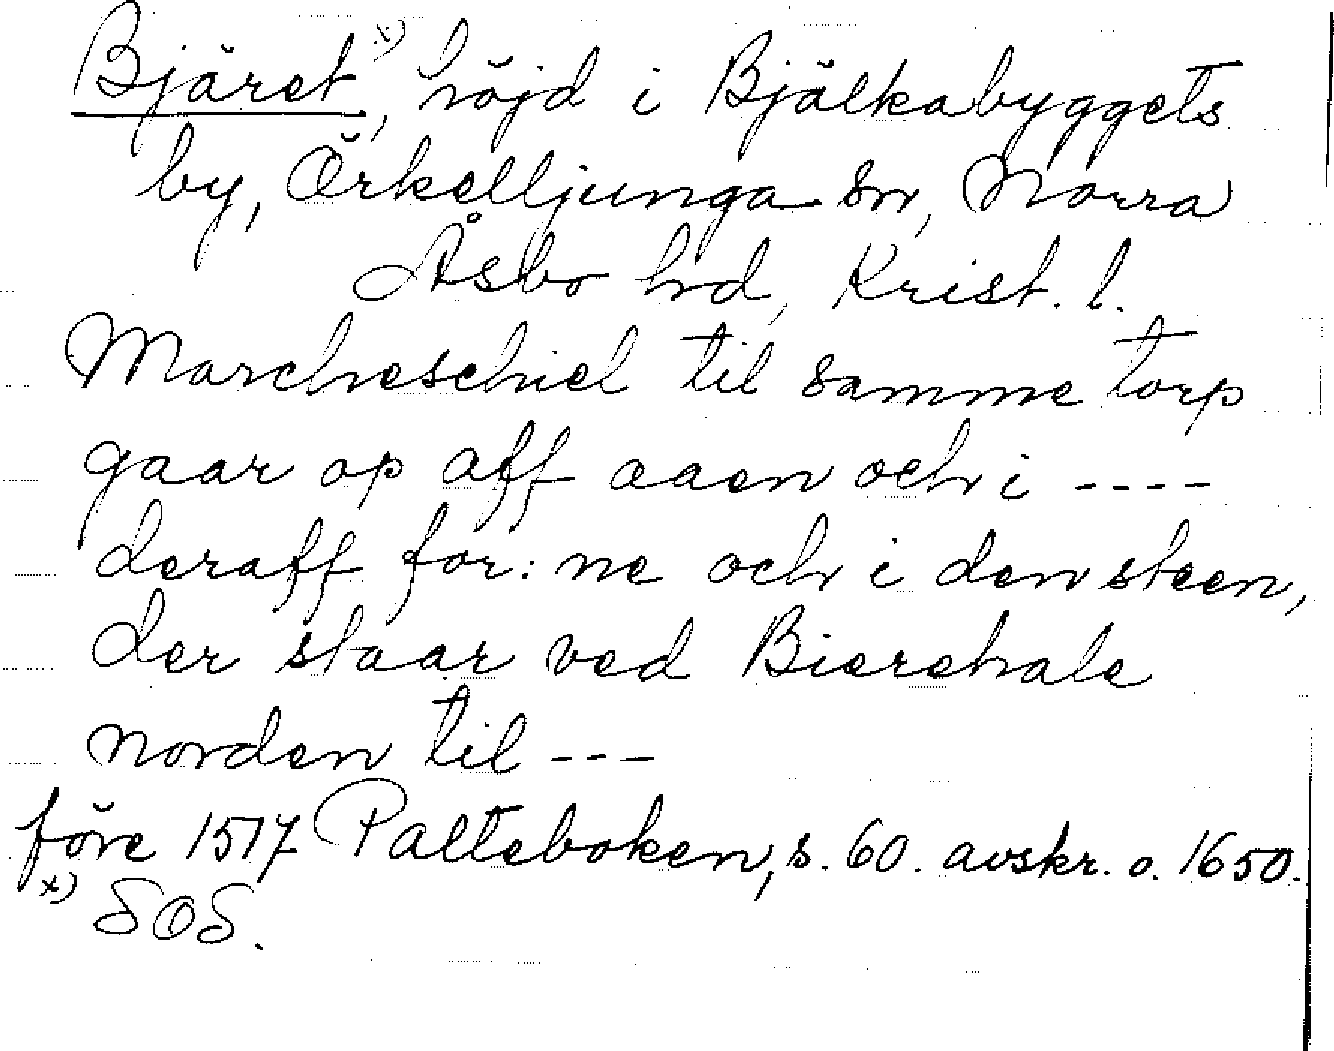 Bjäret x), höjd i Bjälkabyggets
by, Örkelljunga sn, Norra
Åsbo hd, Krist. l.
Marcheschiel til samme torp
gaar op aff aaen och i ----
deraff for: ne och i den steen,
der staar ved Bierehale
norden til ---
före 1517 Palteboken, s. 60. avskr. o. 1650.
x) SOS.